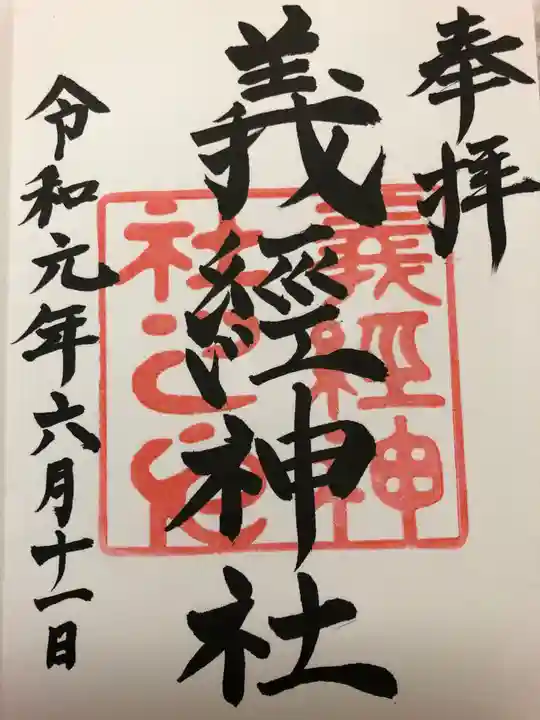 奉拝
義經神社
義經神
社之印
令和元年六月十一日